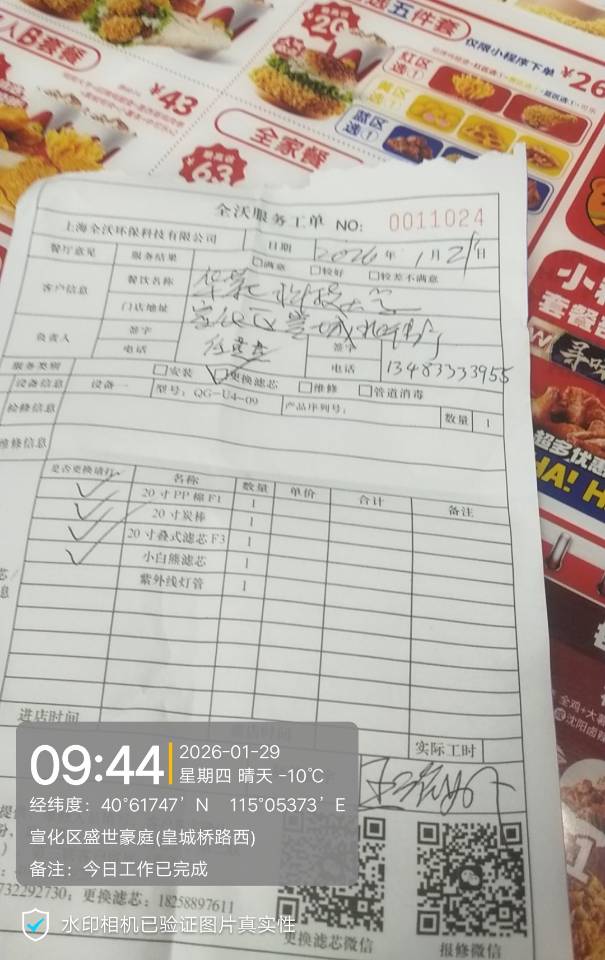 人B套餐
¥43
五件套
仅限小程序下单
¥26
红区
选①
黄区
选①
蓝区
选①
全家餐
63
全沃服务工单 NO: 0011024
上海全沃环保科技有限公司 日期 2026年1月29日
餐厅意见 服务结果 □满意 □较好 □较差不满意
客户信息 餐饮名称
门店地址 宣化区皇城桥
负责人 签字 签字
电话 电话 13483333955
服务类别 □安装 ☑更换滤芯 □维修 □管道消毒
设备信息 设备一 型号: QG-U4-09 产品序列号: 数量 1
检修信息
维修信息
是否更换请打√ 名称 数量 单价 合计 备注
✓ 20寸PP棉F1 1
✓ 20寸炭棒 1
✓ 20寸叠式滤芯F3 1
✓ 小白熊滤芯 1
紫外线灯管 1
进店时间 实际工时
09:44 2026-01-29
星期四 晴天 -10℃
经纬度: 40°61747′N 115°05373′E
宣化区盛世豪庭(皇城桥路西)
备注: 今日工作已完成
732292730; 更换滤芯: 18258897611
水印相机已验证图片真实性
更换滤芯微信 报修微信
小
套餐
寻味
超多优惠
HA! H
全鸡+大
沈阳卤辣